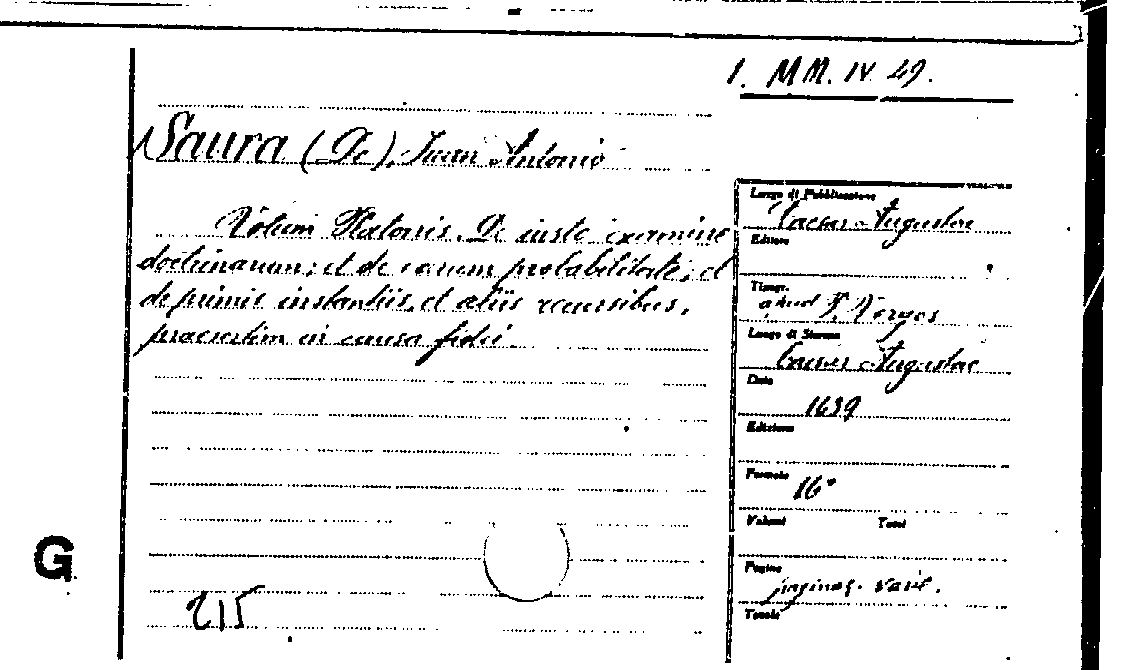 1. MM. IV. 49.
Saura (De), Juan Antonio
Votum Platonis. De iusto examine
doctrinarum; et de earum probabilitate; et
de primis instantiis, et aliis recursibus,
praesertim in causa fidei.
Luogo di Pubblicazione
Caesar-Augustae
Editore
Tipogr.
apud P. Verges
Luogo di Stampa
Caesar-Augustae
Data
1639
Edizione
Formato
16°
Volumi Tomi
Pagine
paginaz. varie.
Tavole
G
215